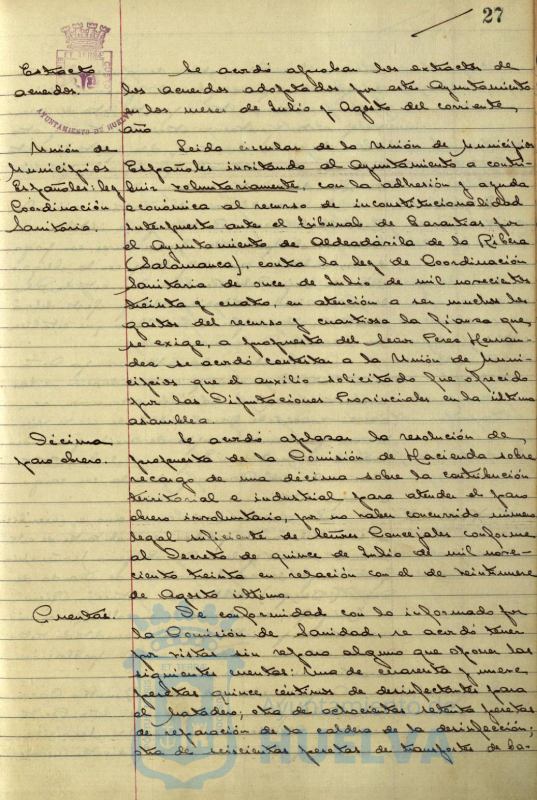 27
Extracto
acuerdos.
Se acordó aprobar los extractos de
los acuerdos adoptados por este Ayuntamiento
en los meses de Julio y Agosto del corriente
año
AYUNTAMIENTO DE HUELVA
Unión de
Municipios
Españoles: ley
Coordinación
Sanitaria.
Leida circular de la Unión de Municipios
Españoles invitando al Ayuntamiento a contri-
buir voluntariamente, con la adhesión y ayuda
económica al recurso de inconstitucionalidad
interpuesto ante el Tribunal de Garantías por
el Ayuntamiento de Aldeadávila de la Ribera
(Salamanca), contra la ley de Coordinación
Sanitaria de once de Julio de mil novecientos
treinta y cuatro, en atención a ser muchos los
gastos del recurso y cuantiosa la fianza que
se exige, a propuesta del Señor Peres Hernan-
dez se acordó contestar a la Unión de Muni-
cipios que el auxilio solicitado fue ofrecido
por las Diputaciones Provinciales en la última
asamblea.
Décima
paro obrero.
Se acordó aplazar la resolución de
propuesta de la Comisión de Hacienda sobre
recargo de una décima sobre la contribución
territorial e industrial para atender el paro
obrero involuntario, por no haber concurrido número
legal suficiente de Señores Concejales conforme
al Decreto de quince de Julio de mil nove-
ciento treinta en relación con el de veintinueve
de Agosto último.
Cuentas.
De conformidad con lo informado por
la Comisión de Sanidad, se acordó tener
por vistas sin reparo alguno que oponer las
siguientes cuentas: Una de cuarenta y nueve
pesetas quince céntimos de desinfectantes para
el Matadero; otra de ochocientas setenta pesetas
de reparación de la caldera de la desinfección;
otra de seiscientas pesetas de transportes de ba-
HUELVA